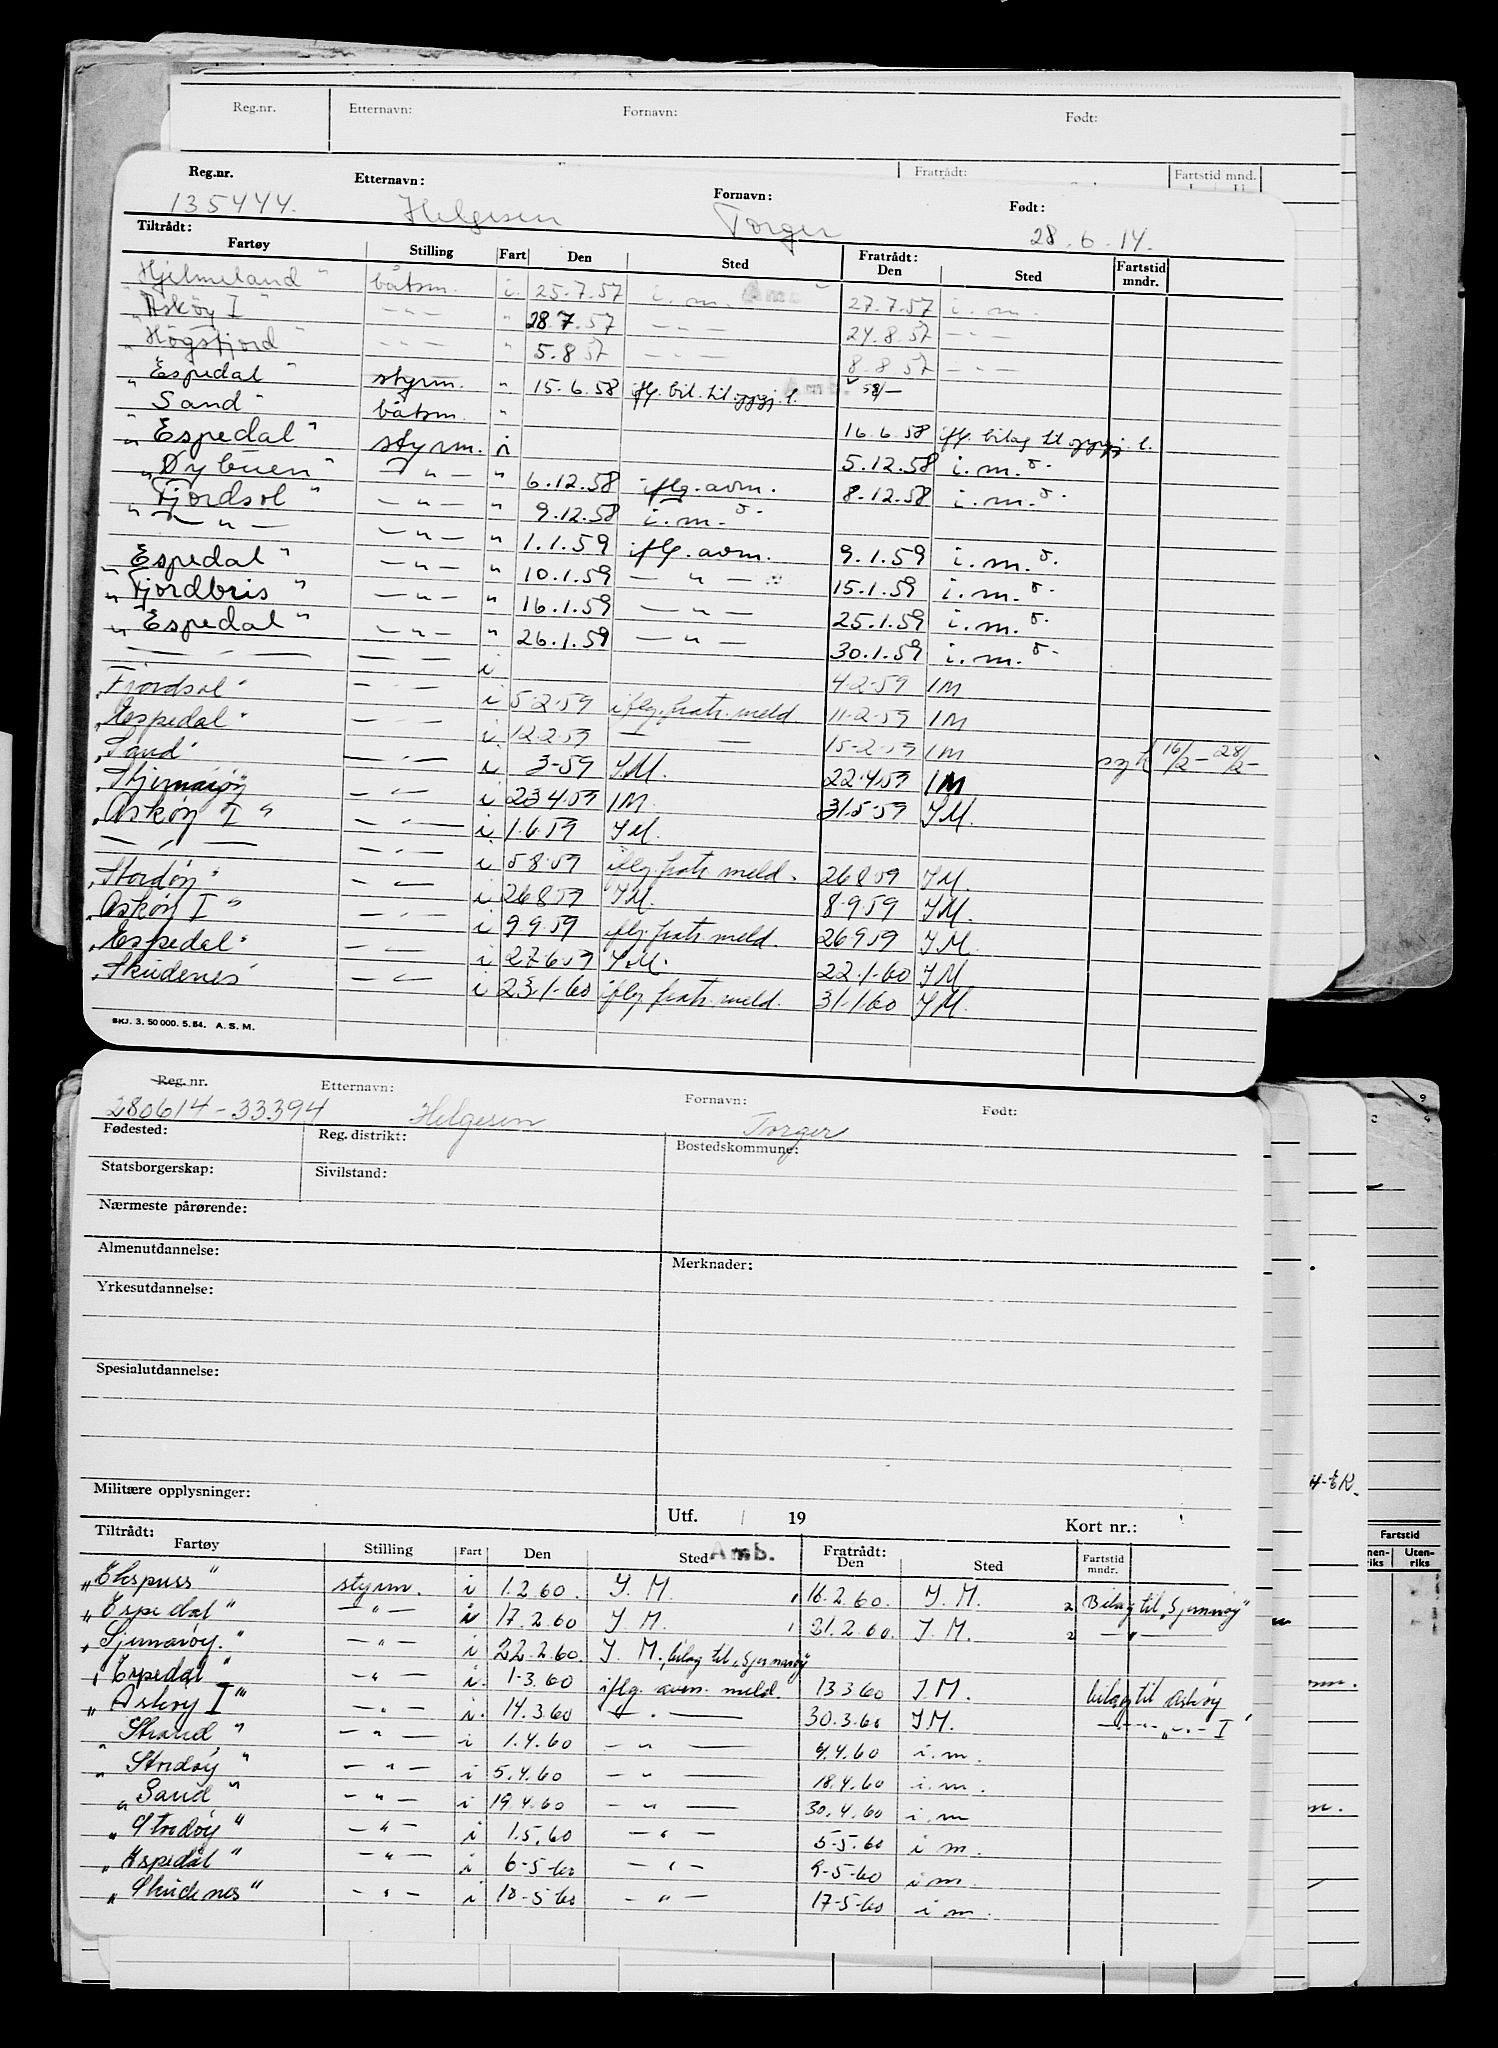 Reg.nr. Etternavn: Fornavn: Født:
Fratrådt: Fartstid mnd.
Reg.nr. Etternavn: Fornavn: Født:
135444. Helgesen Torger 28.6.14.
Tiltrådt: Fratrådt:
Fartøy Stilling Fart Den Sted Den Sted Fartstid mndr.
"Hjelmeland" båtsm. i. 25.7.57 i.m. Amb. 27.7.57 i.m.
"Asköy I" — " — " 28.7.57 — — — 24.8.57 — " —
"Högsfjord — " — " 5.8.57 — — — 8.8.57 — " —
"Espedal" styrm. " 15.6.58 iflg. bil. til oppgj. l.
"Sand" båtsm. " 16.6.58 iflg. bilag til oppgj. l.
"Espedal" styrm. i 5.12.58 i.m.
"Dybuen" — " — " 6.12.58 iflg. avm. 8.12.58 i.m.
"Fjordsol" — " — " 9.12.58 i.m.
— " — — " — " 1.1.59 iflg. avm. 9.1.59 i.m.
"Espedal" — " — " 10.1.59 — " — 15.1.59 i.m.
"Fjordbris" — " — " 16.1.59 — " — 25.1.59 i.m.
"Espedal" — " — " 26.1.59 — " — 30.1.59 i.m.
— " — — " — i 4.2.59 IM
"Fjordsol" — " — i 5.2.59 iflg. fratr. meld 11.2.59 IM
"Espedal" — " — i 12.2.59 — — 15-2.59 IM syk 16/2 - 28/2-
"Sand" — " — i 3-59 I.M. 22.4.59 IM
"Stjernarøy — " — i 23.4.59 IM. 31.5.59 I.M.
"Askøy I" — " — i 1.6.59 IM.
— " — — " — i 5.8.59 iflg. fratr. meld. 26.8.59 I.M.
"Stordøy" — " — i 26.8.59 I.M. 8.9.59 I.M.
"Askøy I" — " — i 9.9.59 iflg. fratr. meld. 26.9.59 I.M.
"Espedal" — " — i 27.6.59 I.M. 22.1-60 I.M
"Skudenes" — " — i 23.1-60 iflg fratr. meld. 31.1.60 I.M.
SKJ. 3. 50 000. 5.54. A.S.M.
Reg.nr. Etternavn: Fornavn: Født:
280614-33394 Helgesen Torger
Fødested: Reg. distrikt: Bostedskommune:
Statsborgerskap: Sivilstand:
Nærmeste pårørende:
Almenutdannelse: Merknader:
Yrkesutdannelse:
Spesialutdannelse:
Militære opplysninger:
Utf. / 19 Kort nr.:
Tiltrådt: Fratrådt:
Fartøy Stilling Fart Den Sted Amb. Den Sted Fartstid mndr.
"Ekspress" styrm. i 1.2.60. I. M. 16.2.60. I. M. 2 Bilag til "Sjernarøy"
"Espedal" — " — i 17.2.60 I M. 21.2.60. I. M. 2 — " —
"Sjernarøy." — " — i 22.2.60. I. M., bilag til "Sjernarøy"
"Espedal" — " — i. 1-3.60 iflg. avm. meld. 13.3.60 I.M. bilag til Askøy
"Askøy I" — " — i. 14.3.60 — " — 30.3.60 I.M. — " — I
"Strand" — " — i 1.4.60 — " — 4.4.60 i.m.
"Stordøy" — " — i 5.4.60 — " — 18.4.60 i.m.
"Sand" — " — i 19.4.60 — " — 30.4.60 i.m
"Stordøy" — " — i 1.5.60 — " — 5-5.60 i m.
"Espedal" — " — i 6-5-60 — " — 9-5-60 i m.
"Skudenes" — " — i 10-5-60 — " — 17-5-60 i m.
Fartstid
Uten-riks